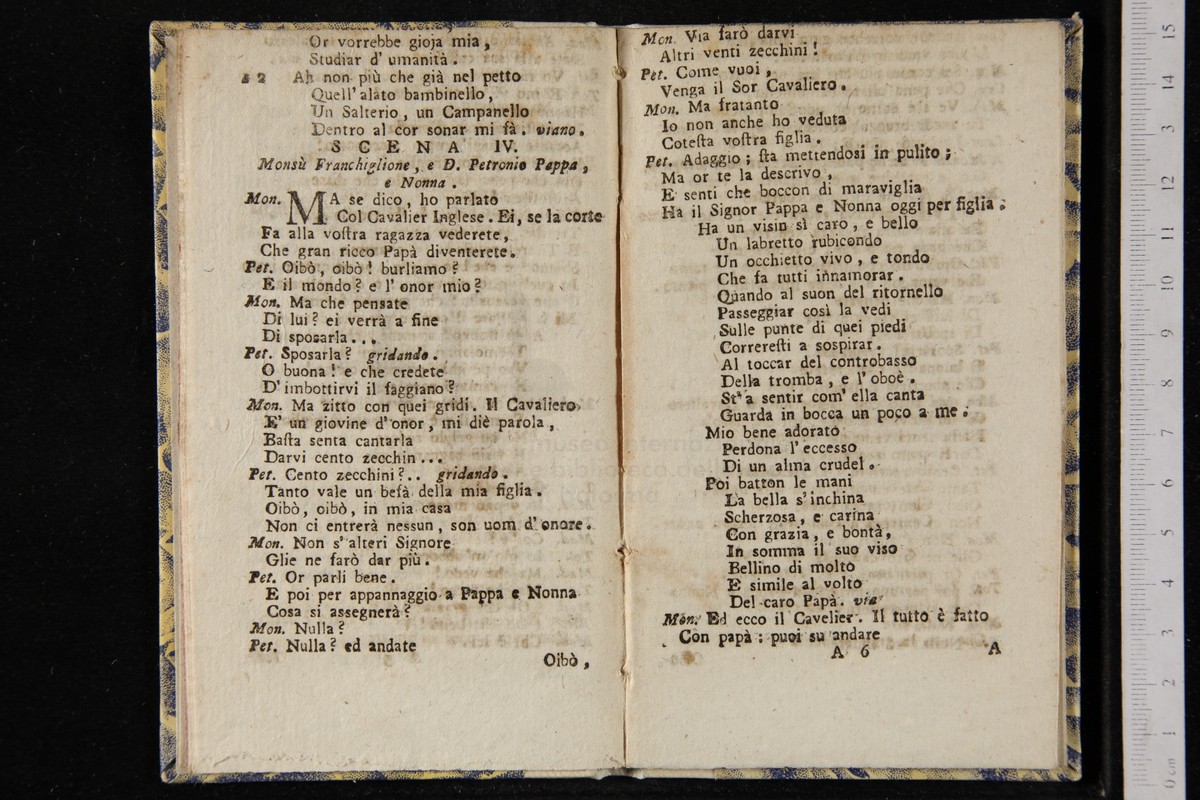 Or vorrebbe gioja mia,
Studiar d' umanità.
a 2 Ah non più che già nel petto
Quell' alato bambinello,
Un Salterio, un Campanello
Dentro al cor sonar mi fà. viano.
SCENA IV.
Monsù Franchiglione, e D. Petronio Pappa,
e Nonna.
Mon. MA se dico, ho parlato
Col Cavalier Inglese. Ei, se la corte
Fa alla vostra ragazza vederete,
Che gran ricco Papà diventerete.
Pet. Oibò, oibò! burliamo?
E il mondo? e l' onor mio?
Mon. Ma che pensate
Di lui? ei verrà a fine
Di sposarla...
Pet. Sposarla? gridando.
O buona! e che credete
D' imbottirvi il faggiano?
Mon. Ma zitto con quei gridi. Il Cavaliero
E' un giovine d' onor, mi diè parola,
Basta senta cantarla
Darvi cento zecchin...
Pet. Cento zecchini?.. gridando.
Tanto vale un befà della mia figlia.
Oibò, oibò, in mia casa
Non ci entrerà nessun, son uom d' onore.
Mon. Non s' alteri Signore
Glie ne farò dar più.
Pet. Or parli bene.
E poi per appannaggio a Pappa e Nonna
Cosa si assegnerà?
Mon. Nulla?
Pet. Nulla? ed andate
Oibò,
Mon. Via farò darvi
Altri venti zecchini!
Pet. Come vuoi,
Venga il Sor Cavaliero.
Mon. Ma fratanto
Io non anche ho veduta
Cotesta vostra figlia.
Pet. Adaggio; sta mettendosi in pulito;
Ma or te la descrivo,
E senti che boccon di maraviglia
Ha il Signor Pappa e Nonna oggi per figlia.
Ha un visin sì caro, e bello
Un labretto rubicondo
Un occhietto vivo, e tondo
Che fa tutti innamorar.
Quando al suon del ritornello
Passeggiar così la vedi
Sulle punte di quei piedi
Correresti a sospirar.
Al toccar del controbasso
Della tromba, e l' oboè.
St' a sentir com' ella canta
Guarda in bocca un poco a me.
Mio bene adorato
Perdona l' eccesso
Di un alma crudel.
Poi batton le mani
La bella s' inchina
Scherzosa, e carina
Con grazia, e bontà,
In somma il suo viso
Bellino di molto
E simile al volto
Del caro Papà. via
Mon. Ed ecco il Cavelier. Il tutto è fatto
Con papà: puoi su andare
A 6 A